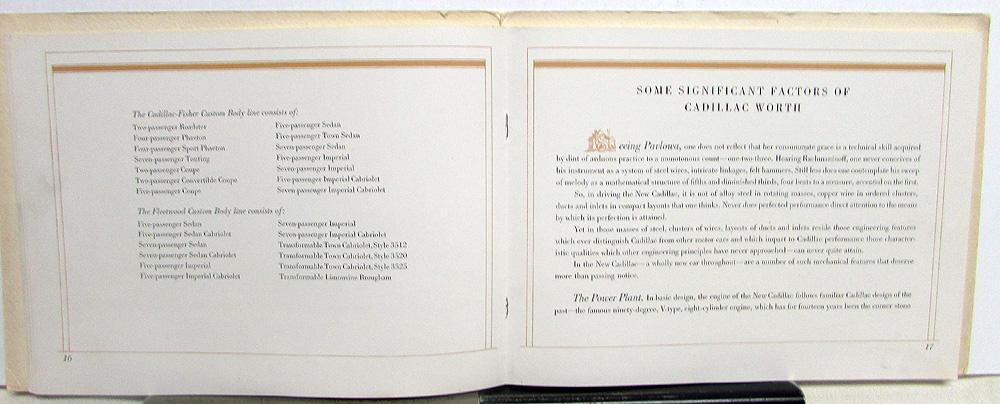 The Cadillac-Fisher Custom Body line consists of:
Two-passenger Roadster
Four-passenger Phaeton
Four-passenger Sport Phaeton
Seven-passenger Touring
Two-passenger Coupe
Two-passenger Convertible Coupe
Five-passenger Coupe
Five-passenger Sedan
Five-passenger Town Sedan
Seven-passenger Sedan
Five-passenger Imperial
Seven-passenger Imperial
Five-passenger Imperial Cabriolet
Seven-passenger Imperial Cabriolet
The Fleetwood Custom Body line consists of:
Five-passenger Sedan
Five-passenger Sedan Cabriolet
Seven-passenger Sedan
Seven-passenger Sedan Cabriolet
Five-passenger Imperial
Five-passenger Imperial Cabriolet
Seven-passenger Imperial
Seven-passenger Imperial Cabriolet
Transformable Town Cabriolet, Style 3512
Transformable Town Cabriolet, Style 3520
Transformable Town Cabriolet, Style 3525
Transformable Limousine Brougham
16
SOME SIGNIFICANT FACTORS OF
CADILLAC WORTH
Seeing Pavlowa, one does not reflect that her consummate grace is a technical skill acquired
by dint of arduous practice to a monotonous count—one two three. Hearing Rachmaninoff, one never conceives of
his instrument as a system of steel wires, intricate linkages, felt hammers. Still less does one contemplate his sweep
of melody as a mathematical structure of fifths and diminished thirds, four beats to a measure, accented on the first.
So, in driving the New Cadillac, it is not of alloy steel in rotating masses, copper wire in ordered clusters,
ducts and inlets in compact layouts that one thinks. Never does perfected performance direct attention to the means
by which its perfection is attained.
Yet in those masses of steel, clusters of wires, layouts of ducts and inlets reside those engineering features
which ever distinguish Cadillac from other motor cars and which impart to Cadillac performance those character-
istic qualities which other engineering principles have never approached—can never quite attain.
In the New Cadillac—a wholly new car throughout—are a number of such mechanical features that deserve
more than passing notice.
The Power Plant. In basic design, the engine of the New Cadillac follows familiar Cadillac design of the
past—the famous ninety-degree, V-type, eight-cylinder engine, which has for fourteen years been the corner stone
17